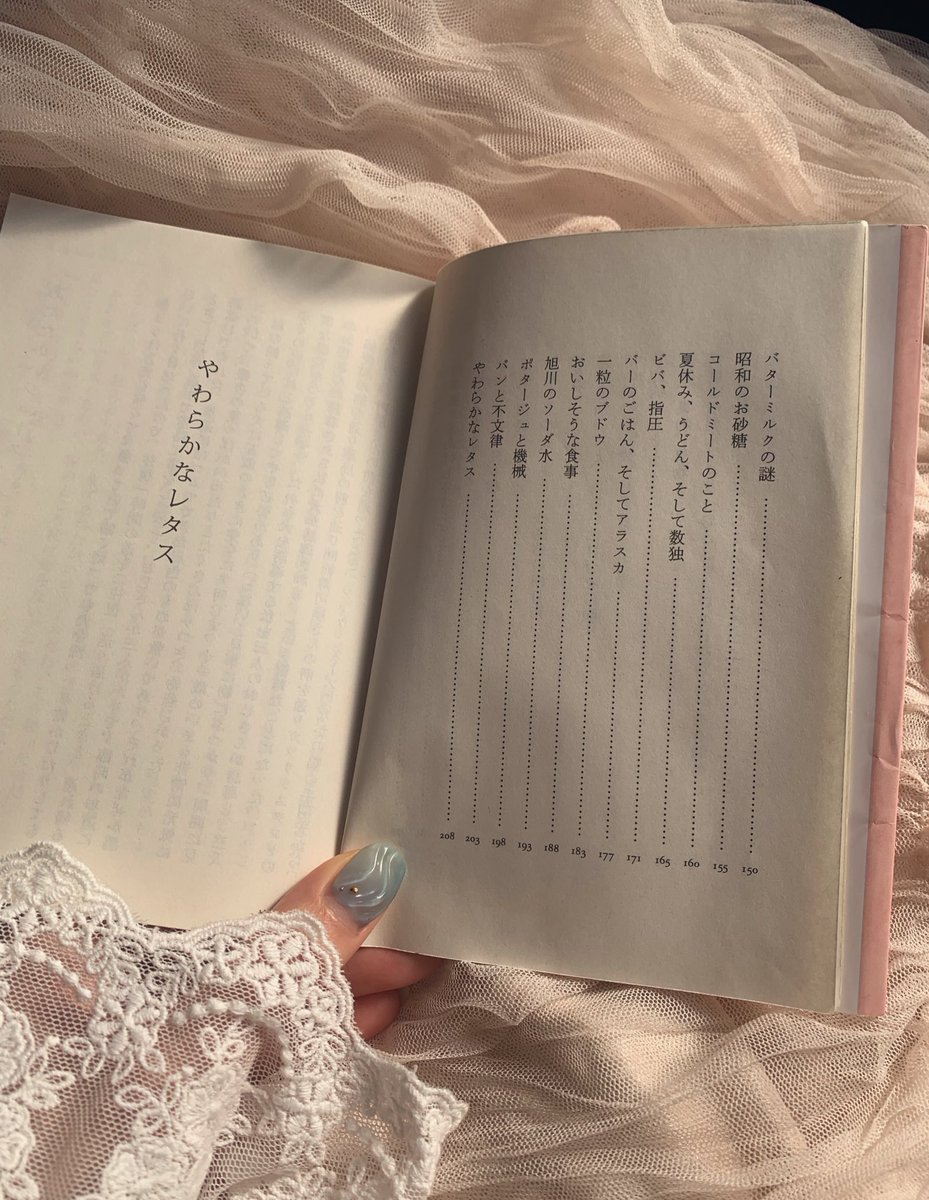 バターミルクの謎……150
昭和のお砂糖……155
コールドミートのこと……160
夏休み、うどん、そして数独……165
ビバ、指圧……171
バーのごはん、そしてアラスカ……177
一粒のブドウ……183
おいしそうな食事……188
旭川のソーダ水……193
ポタージュと機械……198
パンと不文律……203
やわらかなレタス……208
やわらかなレタス